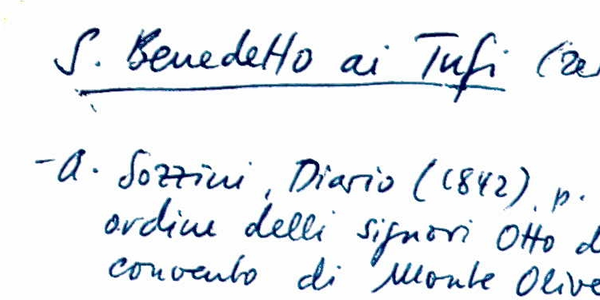 S. Benedetto ai Tufi (
- A. Sozzini, Diario (1842), p.
ordine delli signori Otto d
convento di Monte Olive